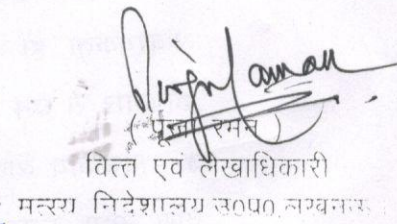 (पूजा रमन)
वित्त एवं लेखाधिकारी
मत्स्य निदेशालय उ0प्र0, लखनऊ